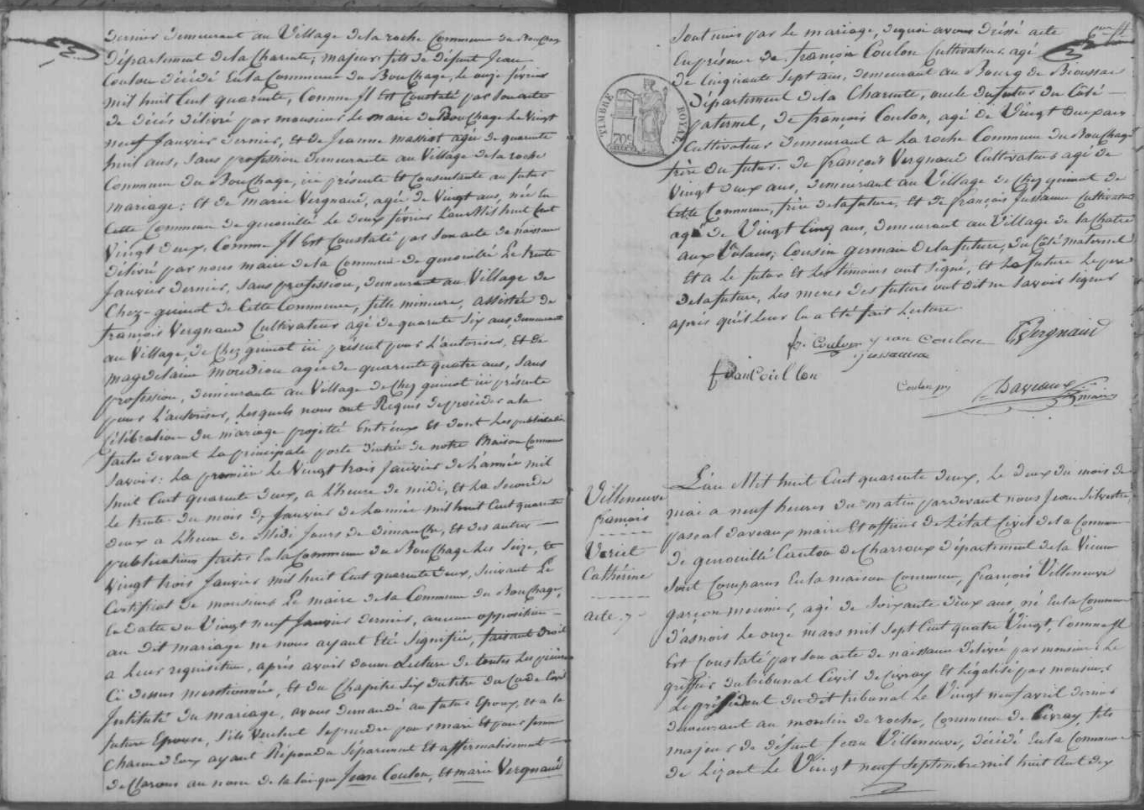 dernier demeurant au Village de la roche Commune du Bouchage
Département de la Charente, majeur, fils de défunt Jean
Coulon décédé En la Commune du Bouchage, le onze février
mil huit Cent quarante, Comme Il Est Constaté par son acte
de décès délivré par monsieur le maire du Bouchage le Vingt
neuf Janvier dernier, et de Jeanne massiot agée de quarante
huit ans, sans profession demeurante au Village de la roche
Commune du Bouchage, ici présente et Consentante au futur
mariage; et de marie Vergnaud, agée de Vingt ans, née En
Cette Commune de genouillé le deux février L'an Mil huit Cent
Vingt deux, Comme Il Est Constaté par son acte de naissance
délivré par nous maire de la Commune de genouillé Le trente
Janvier dernier, sans profession, demeurant au Village de
Chez-guinot de Cette Commune, fille mineure, assistée de
françois Vergnaud Cultivateur agé de quarante six ans, demeurant
au Village de Chez guinot ici présent pour L'autoriser, Et de
magdelaine agée de quarante quatre ans, sans
profession, demeurante au Village de Chez guinot ici présente
pour L'autoriser, Lesquels nous ont Requis de procéder a la
Célébration du mariage projetté Entreux Et dont les publications
faites devant La principale porte d'entrée de notre Maison Commune
Savoir: La première le Vingt trois Janvier de L'année mil
huit Cent quarante deux, a L'heure de midi, et La Seconde
le trente du mois de Janvier de L'année mil huit Cent quarante
deux a L'heure de Midi Jours de dimanche, Et des autres
publications faites En la Commune du Bouchage Les Seize, Et
Vingt trois Janvier mil huit Cent quarante deux, suivant Le
Certificat de monsieur Le maire de la Commune du Bouchage,
En date du Vingt neuf Janvier dernier, aucune opposition
au dit mariage ne nous ayant Eté Signifiée, faisant droit
a Leur requisition, après avoir donné Lecture de toutes Les pièces
Ci dessus mentionnées, Et du Chapitre six du titre du Code Civil
Intitulé du mariage, avons demandé au futur Epoux, et a la
future Epouse, s'ils Veulent se prendre pour mari et pour femme
Chacun d'Eux ayant Répondu Séparément et affirmativement
de Clarons au nom de la loi que Jean Coulon, et marie Vergnaud
Sont unis par le mariage, de quoi avons dréssé acte
En présence de françois Coulon Cultivateur, agé
de Cinquante Sept ans, demeurant au Bourg de Bioussac
Département de la Charente, oncle du futur du Coté
paternel, de françois Coulon, agé de Vingt deux ans
Cultivateur demeurant a La roche Commune du Bouchage
frère du futur. de françois Vergnaud Cultivateur agé de
Vingt deux ans, demeurant au Village de Chez guinot de
Cette Commune, frère de la future, Et de françois Cultivateur
agé de Vingt Cinq ans, demeurant au Village de la Chatre
aux Valans, Cousin germain de la future, du Coté maternel
Et a le futur et Les témoins ont signé, et La future le père
de la future, Les mères des futurs ont dit ne Savoir signer
après qu'il leur En a Eté fait Lecture
TIMBRE ROYAL
f. Coulon Jean Coulon Vergnaud
Daveaux maire
Villeneuve
françois
Catherine
acte 7
L'an Mil huit Cent quarante deux, le deux du mois de
mai a neuf heures du matin pardevant nous Jean Silvestre
pascal Daveaux maire Et officier de L'état Civil de la Commune
de genouillé Canton de Charroux département de la Vienne
Sont Comparus En la maison Commune, françois Villeneuve
garçon meunier, agé de Soixante deux ans, né En la Commune
d'asnois Le onze mars mil sept Cent quatre Vingt, Comme Il
Est Constaté par son acte de naissance délivré par monsieur Le
greffier du tribunal Civil de Civray et Légalisé par monsieur
Le président du dit tribunal Le Vingt neuf avril dernier
demeurant au moulin de roche, Commune de Civray, fils
majeur de défunt Jean Villeneuve, décédé En la Commune
de Lizant Le Vingt neuf Septembre mil huit Cent deux